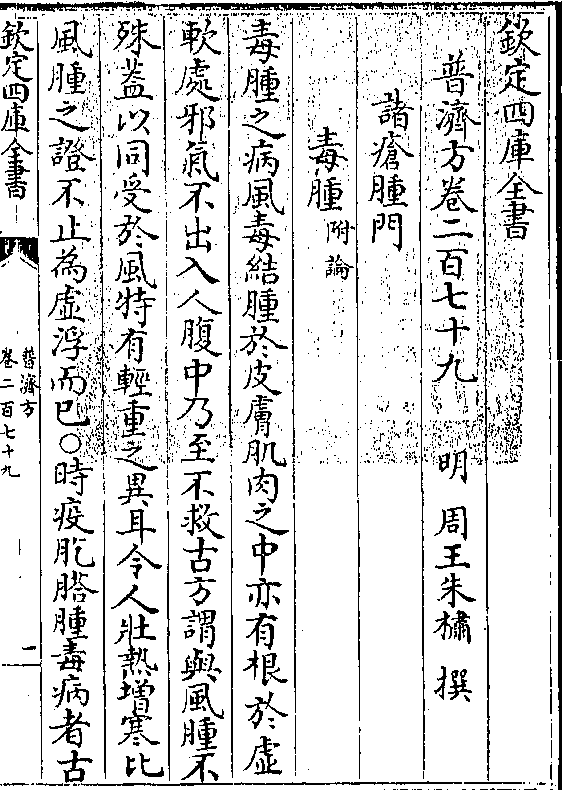 欽定四庫全書
普濟方卷二百七十九　明　周王朱橚　撰
諸瘡腫門
毒腫附論
毒腫之病風毒結腫於皮膚肌肉之中亦有根於虛
軟處邪氣不出入人腹中乃至不救古方謂與風腫不
殊葢以同受於風特有輕重之異耳令人壯熱增寒比
風腫之證不止為虛浮而已○時疫肐膅腫毒病者古
欽定四庫全書
普濟方
卷二百七十九
一